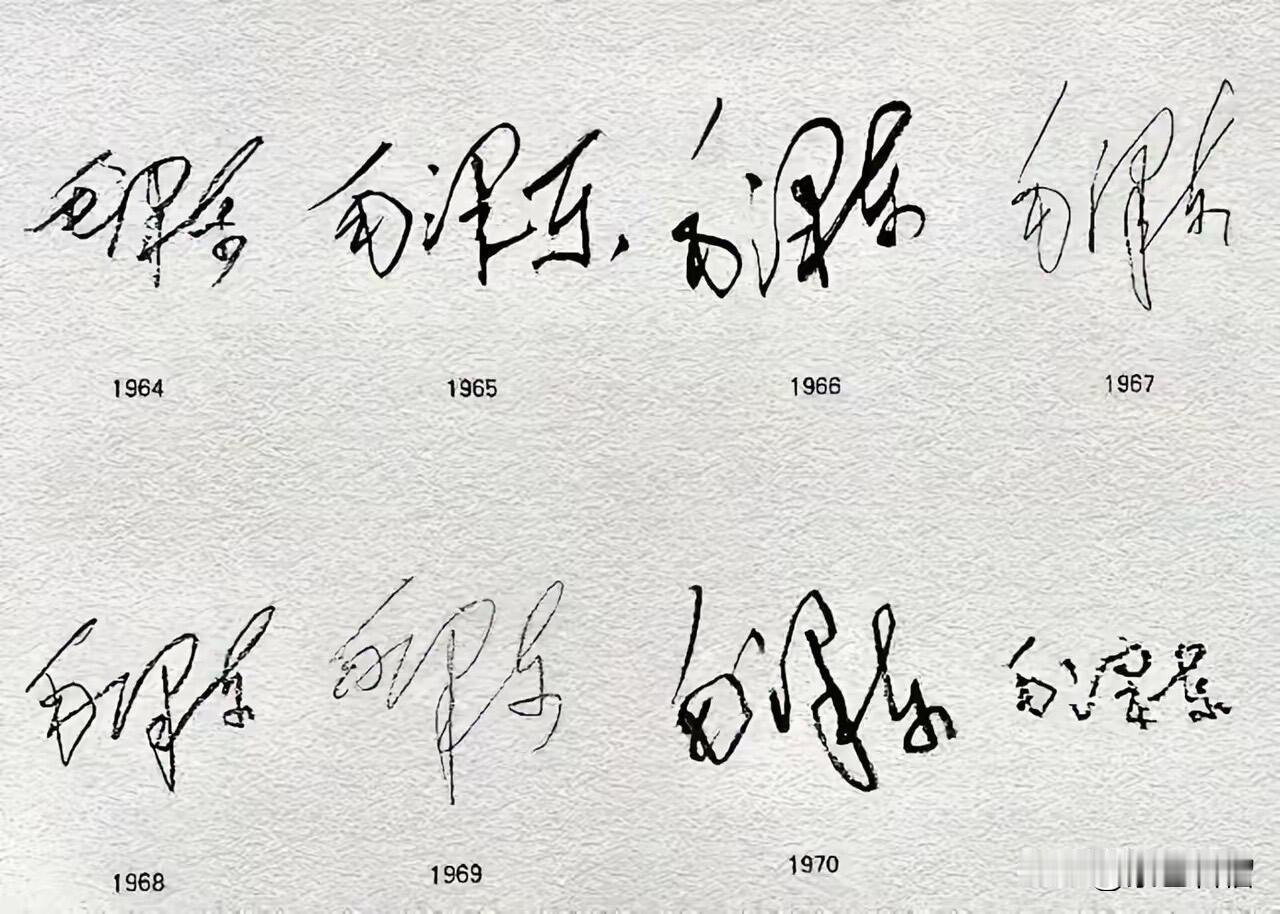 毛泽东 毛泽东 毛泽东 毛泽东
1964 1965 1966 1967
毛泽东 毛泽东 毛泽东 毛泽东
1968 1969 1970